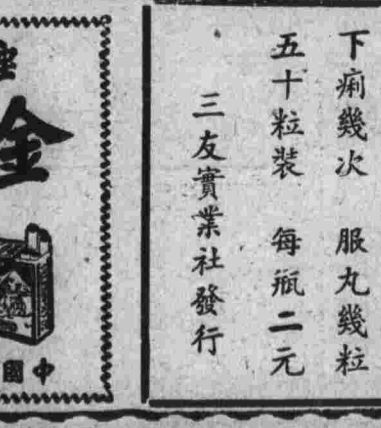 下痢幾次　服丸幾粒
五十粒裝　每瓶二元
三友實業社發行
金
中國